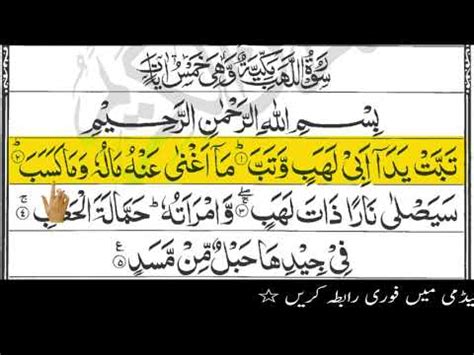 سُوْرَةُ اللَّهَبِ مَكِّيَّةٌ وَّهِيَ خَمْسُ اٰيَاتٍ
بِسْمِ اللّٰهِ الرَّحْمٰنِ الرَّحِيْمِ
تَبَّتْ يَدَاۤ اَبِيْ لَهَبٍ وَّتَبَّ ۱ مَاۤ اَغْنٰى عَنْهُ مَالُهٗ وَمَا كَسَبَ ۲
سَيَصْلٰى نَارًا ذَاتَ لَهَبٍ ۳ وَّامْرَاَتُهٗ ؕ حَمَّالَةَ الْحَطَبِ ۴
فِيْ جِيْدِهَا حَبْلٌ مِّنْ مَّسَدٍ ۵ ع
یڈمی میں فوری رابطہ کریں ☆